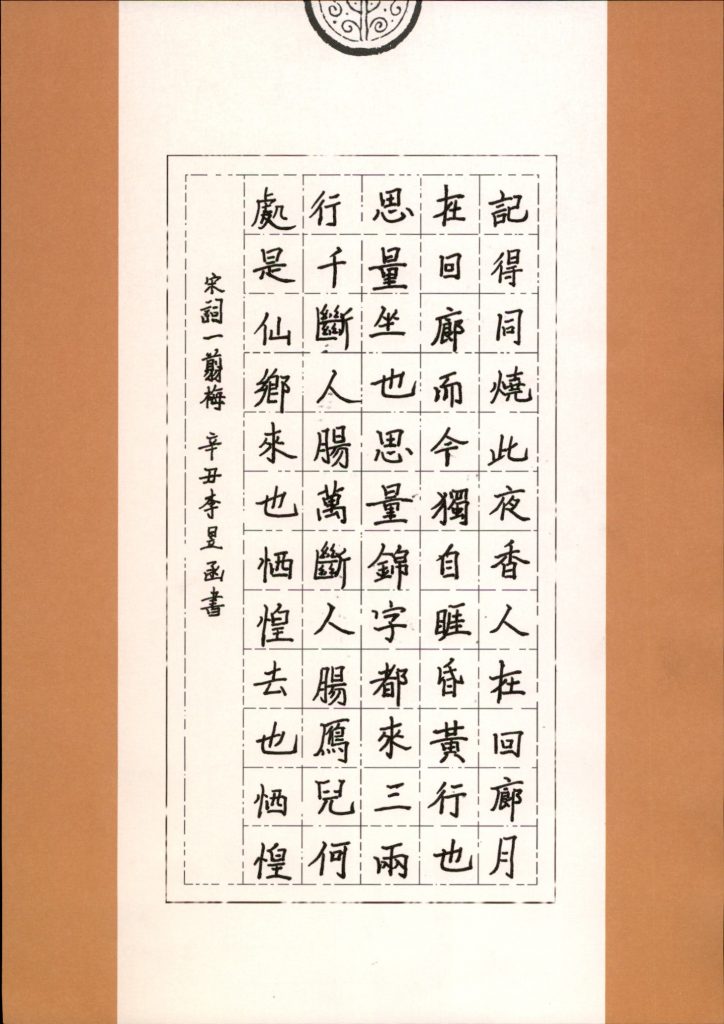 記得同燒此夜香人在回廊月
在回廊而今獨自睚昏黃行也
思量坐也思量錦字都來三兩
行千斷人腸萬斷人腸鴈兒何
處是仙鄉來也恓惶去也恓惶
宋詞一剪梅 辛丑李昱函書